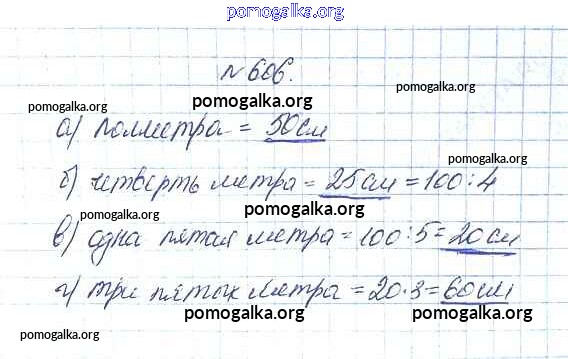 pomogalka.org
№ 606.
pomogalka.org pomogalka.org
pomogalka.org
а) полметра = 50см
pomogalka.org
б) четверть метра = 25см = 100:4
pomogalka.org pomogalka.org
в) одна пятая метра = 100:5 = 20 см
pomogalka.org pomogalka.org
г) три пятых метра = 20·3 = 60см
pomogalka.org pomogalka.org
pomogalka.org